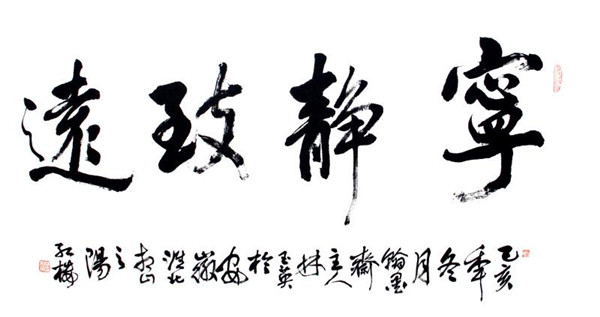 寧静致遠
乙亥年冬月翰墨齋主人林玉英於安徽淮北相山之陽红梅